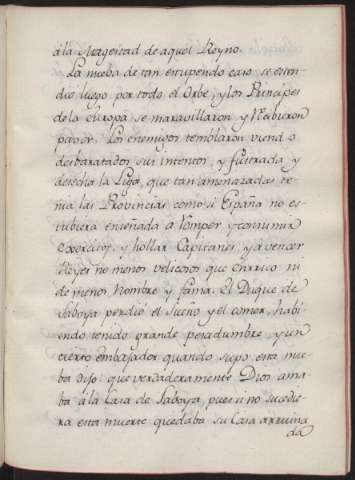 á la Magestad de aquel Reyno.
La nueba de tan estupendo caso se esten
dió luego por todo el Orbe, y los Principes
de la Europa se maravillaron, y recibieron
pavor. Los enemigos temblaron viendo
desbaratados sus intentos, y frustrada y
desecha la Liga, que tan amenazadas te
nia las Provincias como si España no es
tubiera enseñada á romper y consumir
exercitos, y hollar Capitanes, y á vencer
Reyes no menos velicosos que Enrrico ni
de menos nombre y fama. El Duque de
Saboya perdió el sueño y el comer, habi
endo tenido grande pesadumbre, y un
cierto embajador quando supo esta nue
ba dijo: que verdaderamente Dios ama
ba á la Casa de Saboya, pues si no sucedie
ra esta muerte quedaba su Casa arruina
da